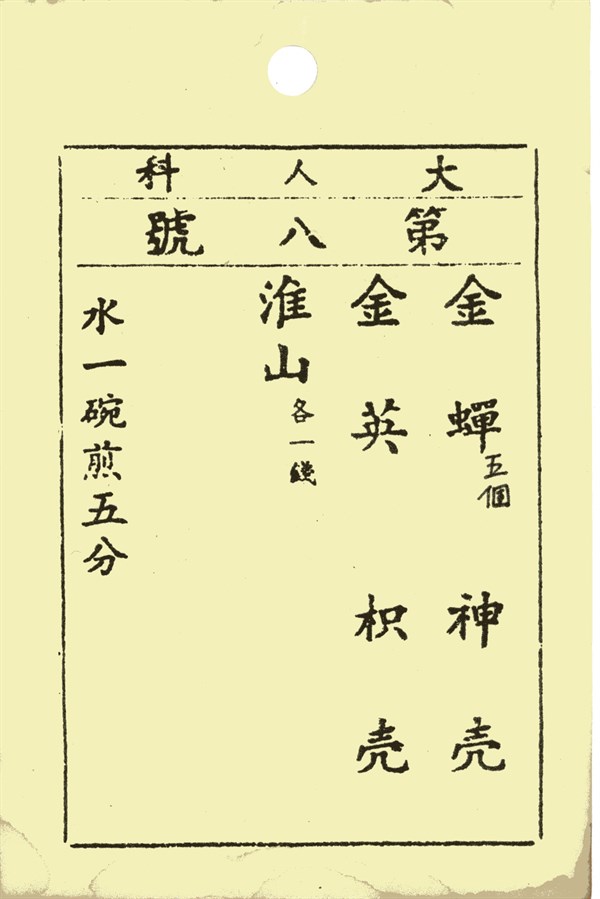 大人科
第八號
金蟬五個 神壳
金英 枳壳
淮山各一錢
水一碗煎五分